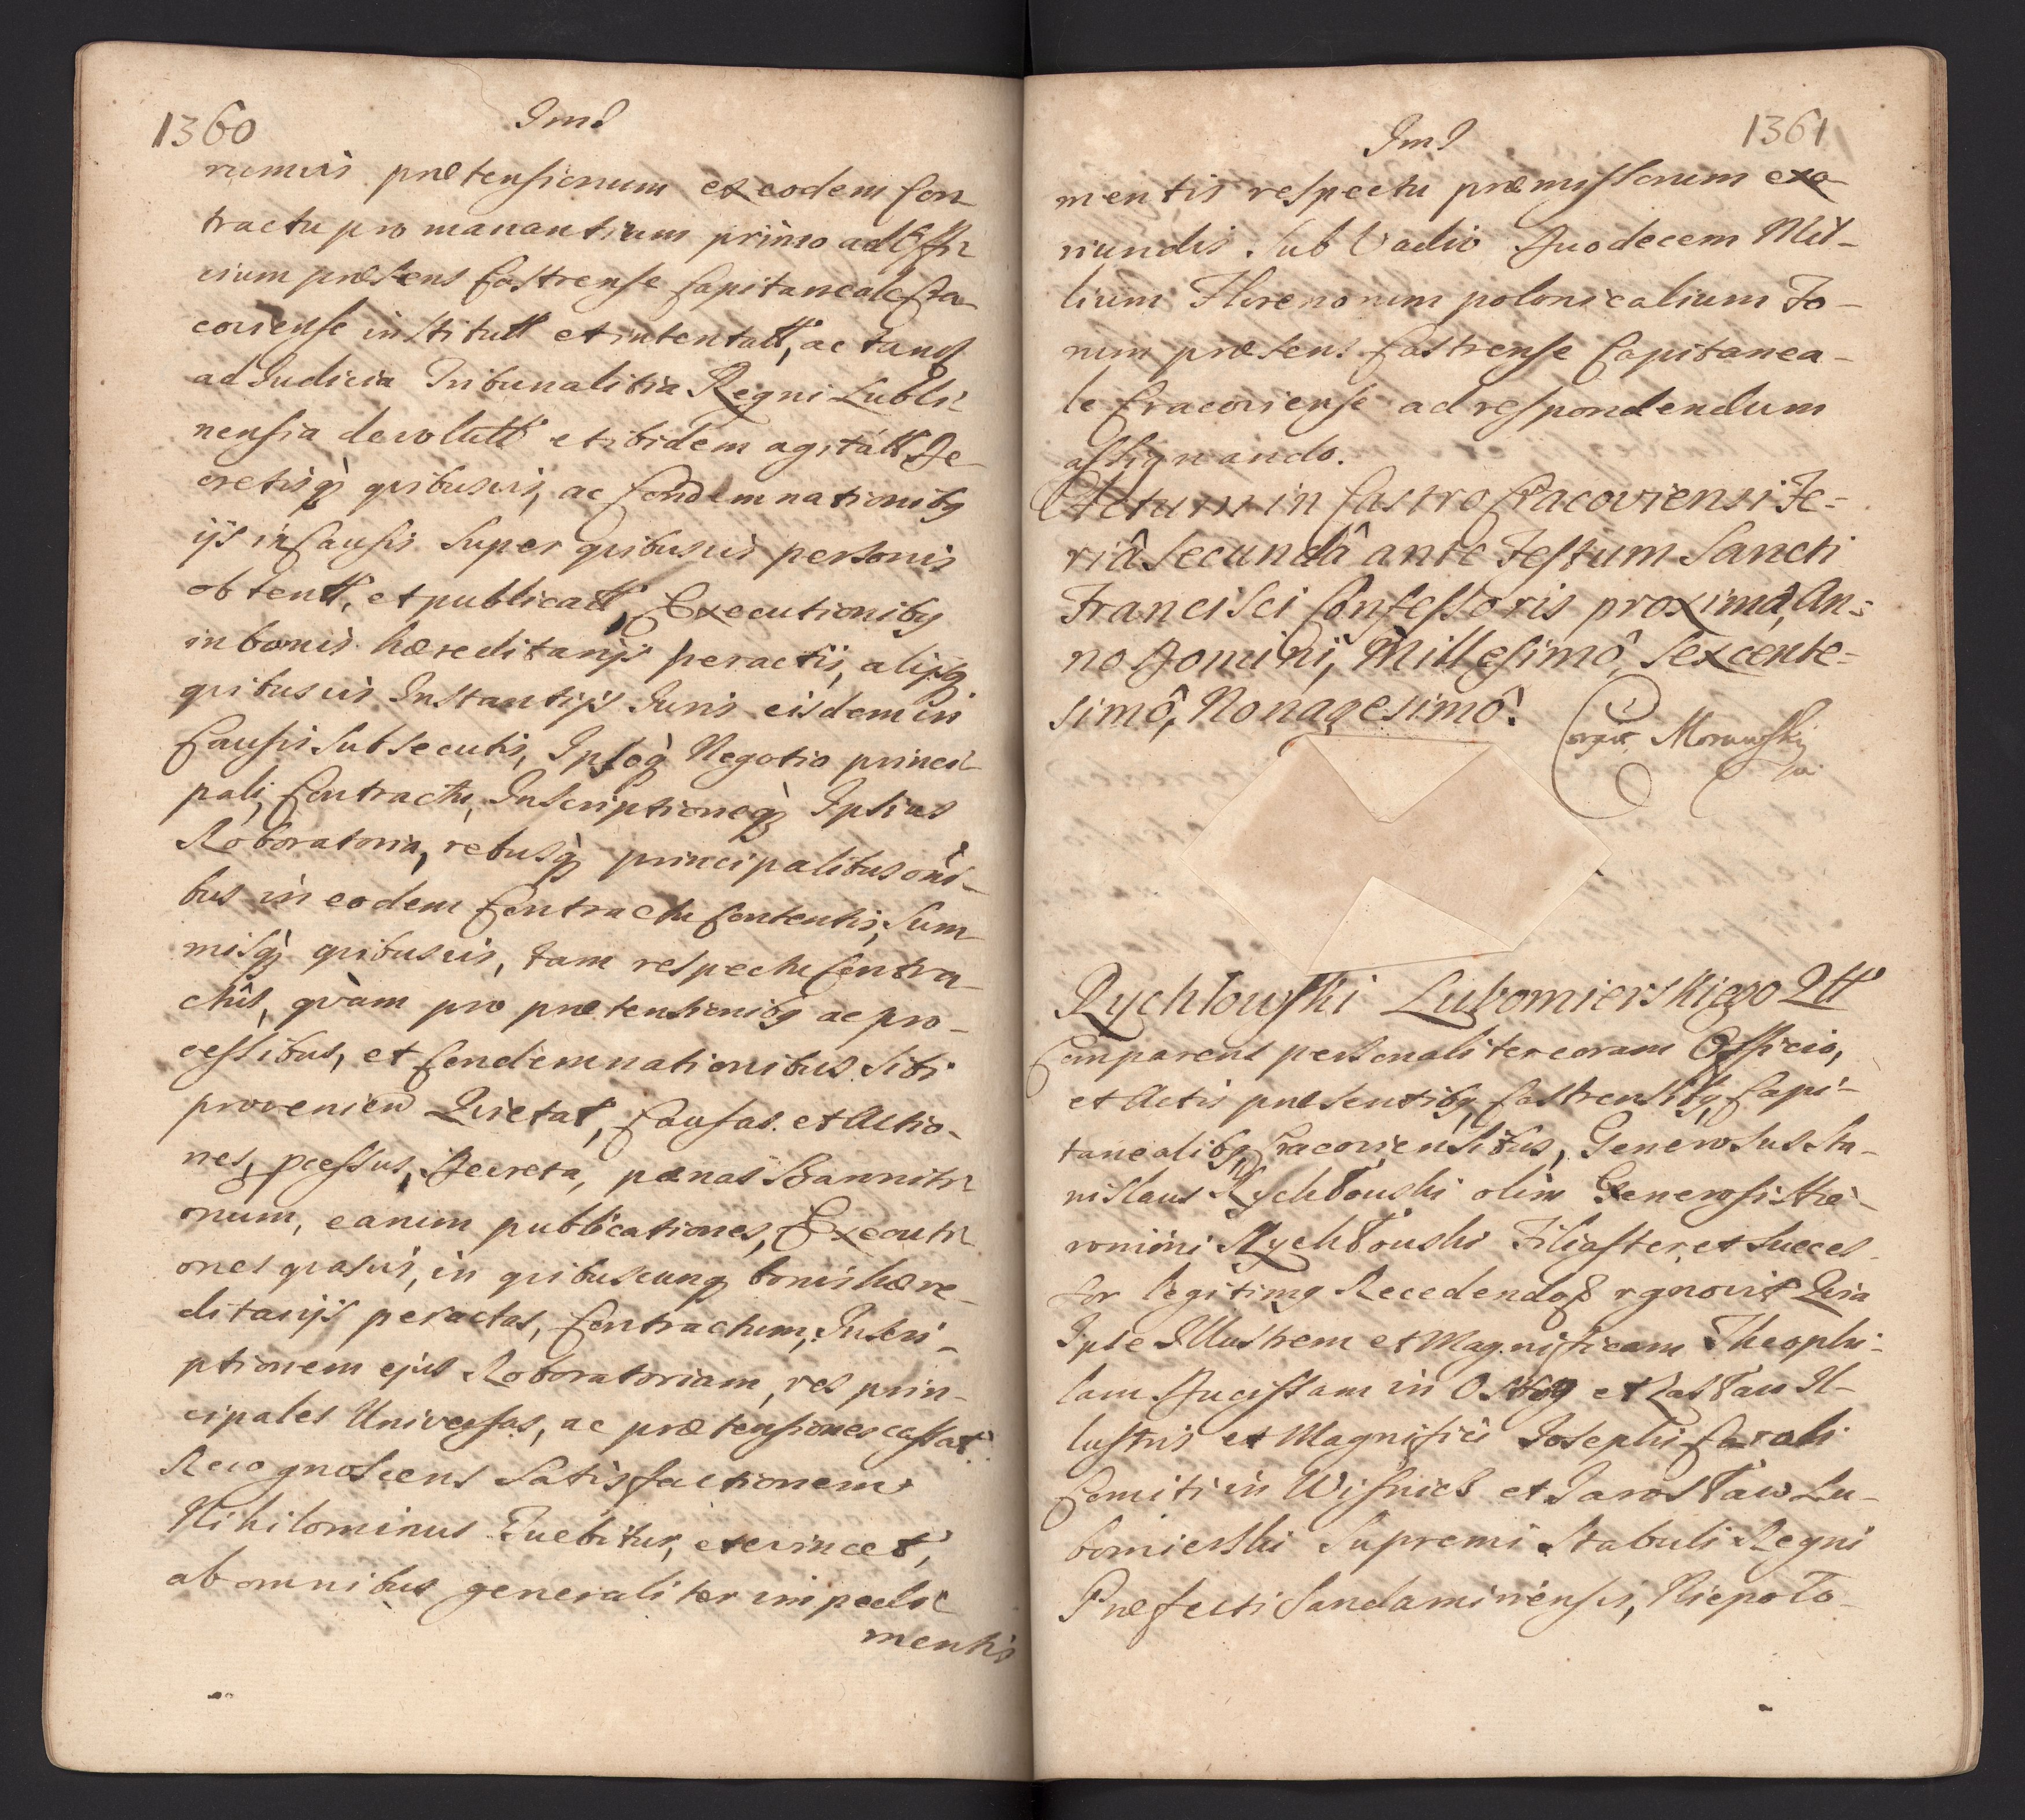 1360
rumvis prætensionum ex eodem Con-
tractu pro manantium primo ad Offi-
cium præsens Castrense Capitaneale Cra-
coviense institutt et intentatt, ac tandȩ
ad Judicia Tribunalitia Regni Lubli-
nensia devolutt et ibidem agitatt De-
cretisq; quibusvis, ac Condemnationibq
ijs in Causis super quibusvis personis
obtentt, et publicatt, Executionibq
in bonis hæreditarijs peractis, alijsq
quibusvis Instantijs Juris eisdem in
Causis subsecutis, Ipsoq; Negotio princi-
pali, Contractu, Inscriptioneq; Ipsius
Roboratoria, rebusq; principalibus oni-
bus in eodem Contractu Contentis, Sum-
misq; quibusvis, tam respectu Contra-
ctûs, quàm pro prætensionibq ac pro-
cessibus, et Condemnationibus sibi
provenien Quietat, Causas et Actio-
nes, pcessus, Decreta, pænas Banniti-
onum, earum publicationes, Executi-
ones quasvis, in quibuscunq bonis hære-
ditarijs peractas, Contractum, Inscri-
ptionem ejus Roboratoriam, res prin-
cipales Universas, ac prætensiones cassat
Recognoscens Satisfactionem
Nihilominus Tuebitur, et evincet,
ab omnibus generaliter impedi-
mentis
1361
mentis respectu præmissorum exo-
riundis. Sub Vadio Duodecem Mil-
lium Florenorum polonicalium Fo-
rum præsens Castrense Capitanea-
le Cracoviense ad respondendum
assignando.
Actum in Castro Cracoviensi Fe-
riâ Secundâ ante Festum Sancti
Francisci Confessoris proximâ, An-
no Domini, Millesimô, Sexcente-
simô, Nonagesimô.
Morawski
Rychłowski Lubomierskiego Qtt
Comparens personaliter coram Officio,
et Actis præsentibq, Castrensibq, Capi-
tanealibq, Cracoviensibus, Generosus Sta-
nislaus Rychłouski olim Generosi Hie-
ronimi Rychłouski Filiaster, et Succes-
sor legitimq Recedendo & rgnovit Quia
Ipse Illustrem et Magnificam Theophi-
lam Ducissam in Ostrog et Zasław Il-
lustris et Magnifici Josephi Caroli
Comiti in Wisnicz et Jarosław Lu-
bomierski Supremi Stabuli Regni
Præfecti Sandamiriensis, Niepoło-